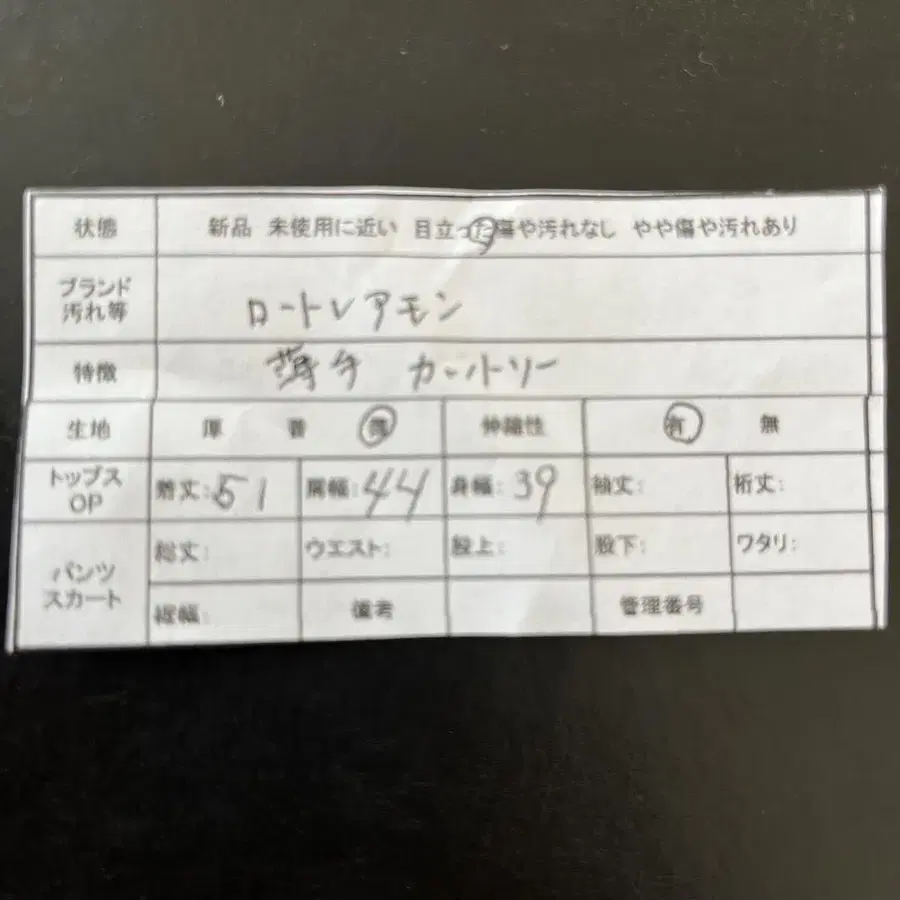 状態 新品 未使用に近い 目立った傷や汚れなし やや傷や汚れあり
ブランド
汚れ等
ロートレアモン
特徴 薄手 カットソー
生地 厚 普 薄 伸縮性 有 無
トップス
OP
着丈:51 肩幅:44 身幅:39 袖丈: 裄丈:
パンツ
スカート
総丈: ウエスト: 股上: 股下: ワタリ:
裾幅: 備考 管理番号